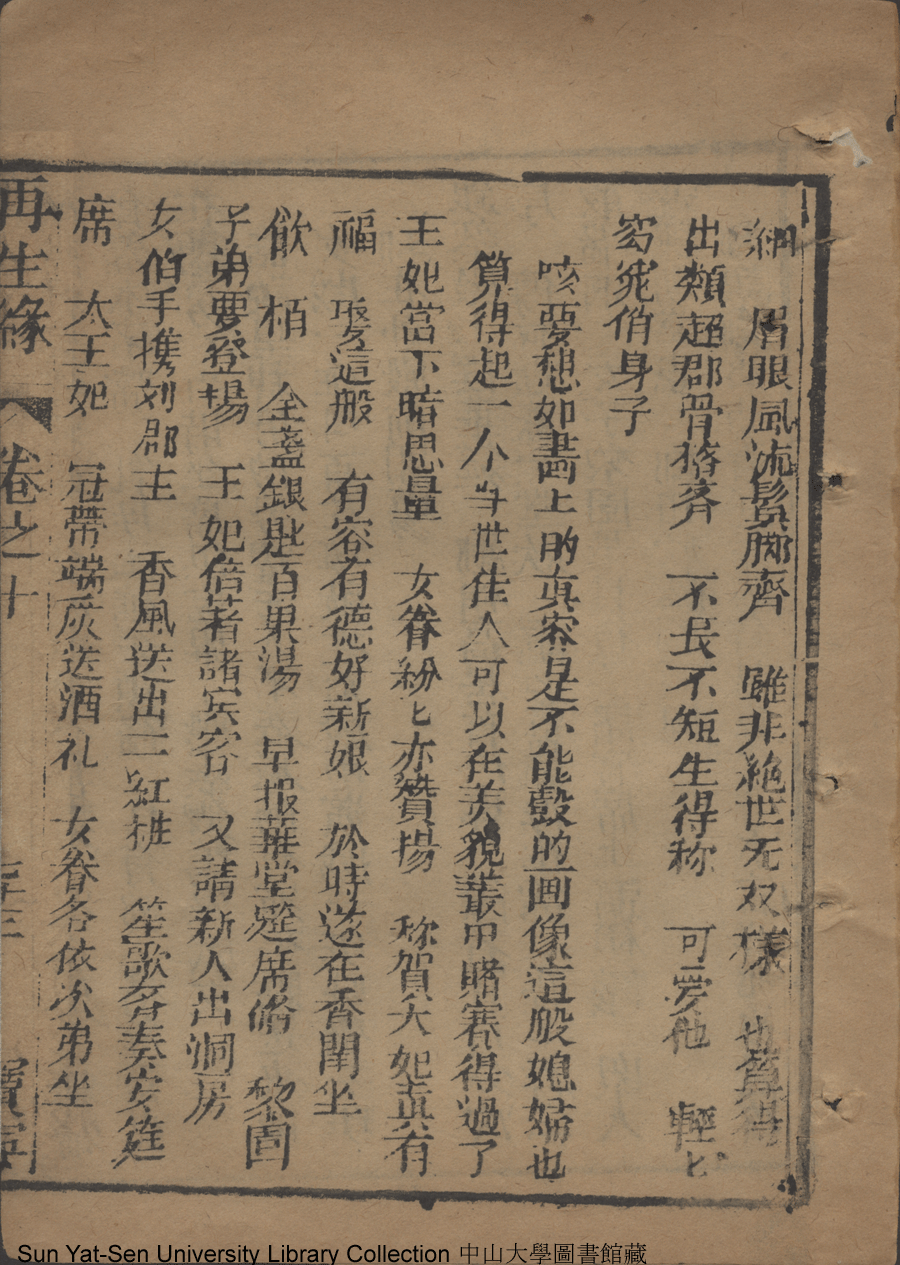 細　眉眼風流鬓脚齊　雖非絶世无双樣　也算得
出類超郡骨挌斉　不長不短生得称　可爱他　輕匕
窈窕俏身子
咳要想如畵上的真容是不能彀的画像這般媳婦也
算得起一个当世佳人可以在美貌叢中賭賽得過了
王妃當下暗思量　女眷紛匕亦贊揚　称賀太妃真有
福　娶這般　有容有德好新娘　於時遂在香閨坐
飲栢　全盞銀匙百果湯　早报華堂筵席偹　黎園
子弟要登場　王妃倍著諸宾客　又請新人出洞房
女伯手携刘郡主　香風送出二紅粧　笙歌各奏安筵
席　太王妃　冠帶端庄送酒礼　女眷各依次弟坐
再生緣　卷之十　寶寧
Sun Yat-Sen University Library Collection 中山大學圖書館藏